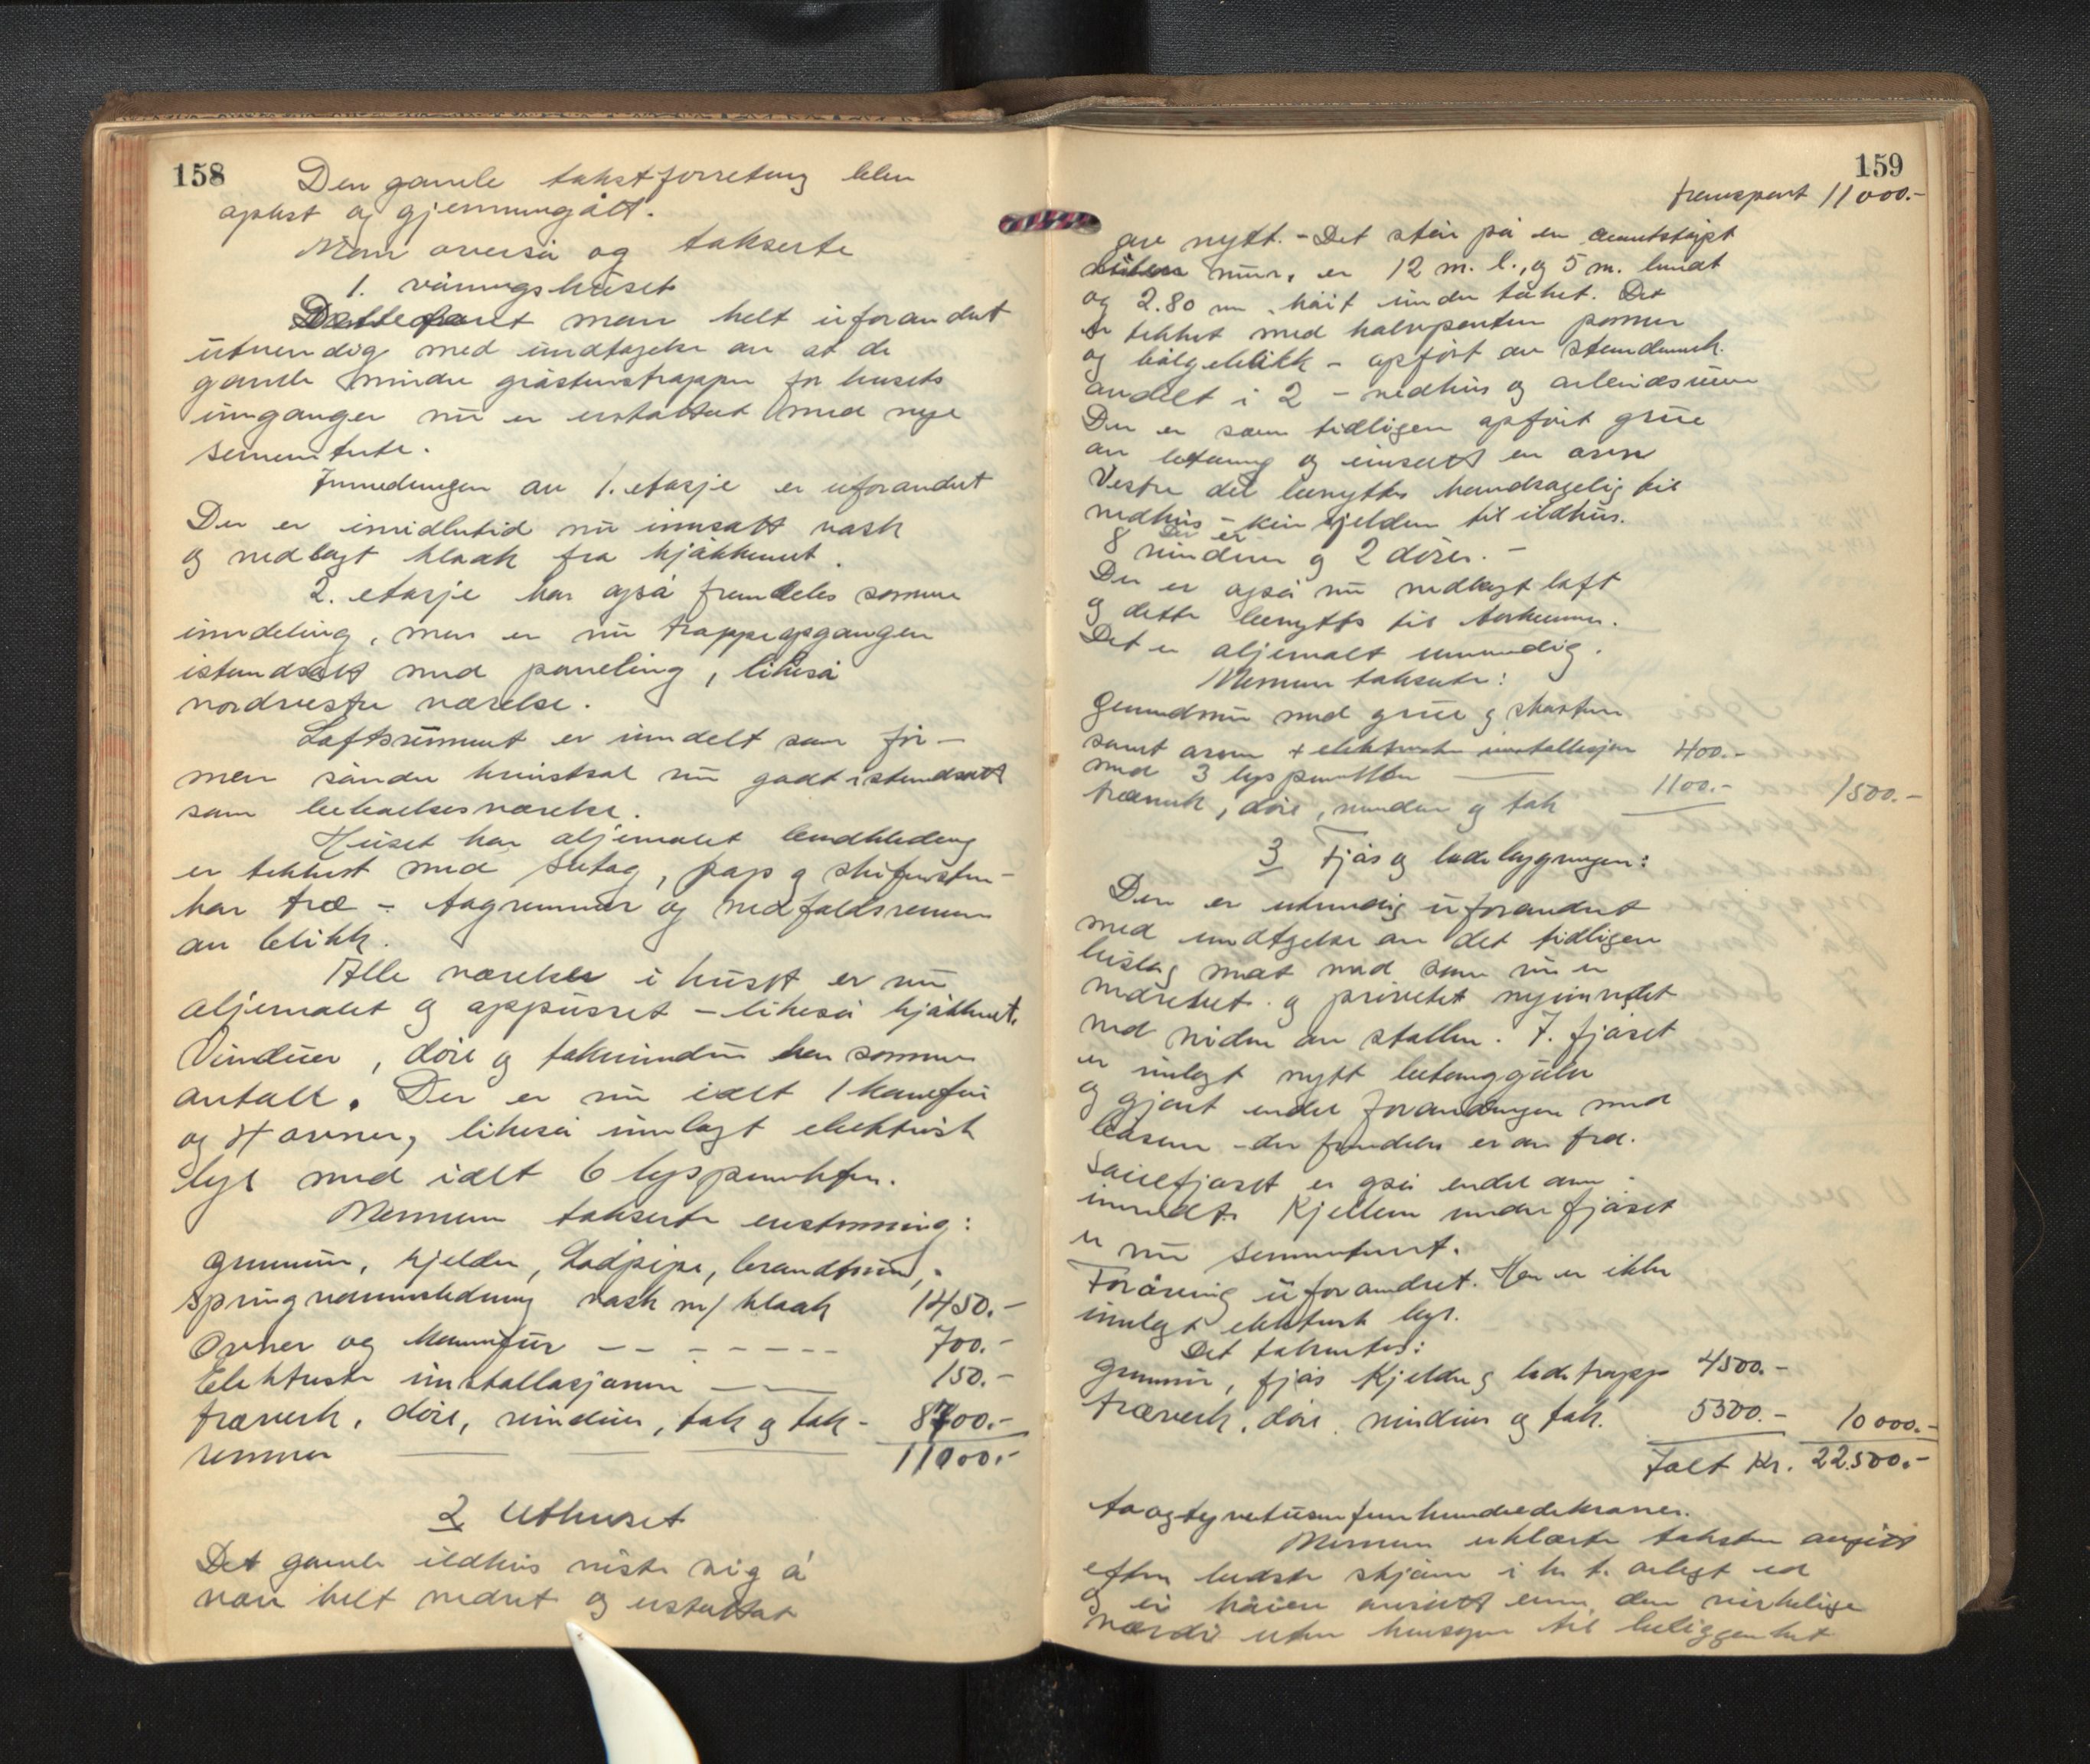 158
Den gamle takstforretning blev
oplest og gjennemgått.
Man overså og takserte
1. våningshuset
Dette fant man helt uforandret
utvendig med undtagelse av at de
gamle mindre gråstenstrapper for husets
innganger nu er erstattet med nye
sementerte.
Innredningen av 1. etasje er uforandret
Der er imidlertid nu innsatt vask
og nedlagt kloak fra kjøkkenet.
2. etasje har også fremdeles samme
inndeling, men er nu trappeopgangen
istandsatt med paneling, likeså
nordvestre værelse.
Loftsrummet er inndelt som før -
men søndre kvistsal nu godt istandsatt
som beboelsesværelse.
Huset har oljemalet bordkledning
er tekket med sutag, papp og skifersten -
har træ - tagrenner og nedfaldsrenner
av blikk.
Alle værelser i huset er nu
oljemalet og oppusset - likeså kjøkkenet.
Vinduer, dører og takvinduer har samme
antall. Der er nu ialt 1 komfur
og 4 ovner, likeså innlagt elektrisk
lys med ialt 6 lyspunkter.
Mennene takserte enstemmig:
Grunnmur, kjelder, Lodpipe, brandmur,
Springvannsledning vask m/ kloak 1450.-
Ovner og komfur - - - - - - - 700.-
Elektriske installasjoner — — 150.-
træverk, dører, vinduer, tak og tak- 8700.-
renner — — 11000.-
2 Uthuset
Det gamle ildhus viste sig å
være helt nedrevet og erstattet
159
transport 11000.-
av nytt. - Det står på en sementstøpt
mur, er 12 m. l., og 5 m. bredt
og 2.80 m. høit under taket. Det
er tekket med halvpanten panner
og bølgeblikk - opført av stenderverk.
avdelt i 2 - vedhus og arbeidsrum
Der er som tidligere opført grue
av betong og innsatt en ovn
Vestre del benyttes hovedsagelig til
vedhus - kun sjelden til ildhus.
Der er
8 vinduer og 2 dører. -
Der er også nu nedlagt loft
og dette benyttes til tørkerum.
Det er oljemalt utvendig.
Mennene takserte:
Grunnmur med grue og skorsten
samt ovn + elektriske installasjon 400.-
med 3 lyspunkter —
træverk, dører, vinduer og tak 1100.- 1500.-
3 Fjøs og ladebygningen:
Den er utvendig uforandret
med undtagelse av det tidligere
bislag mot nord som nu er
nedrevet og privetet nyinnredet
ved siden av stallen. I fjøset
er innlagt nytt betonggulv
og gjort endel forandringer med
båsene - der fremdeles er av træ.
Sauefjøset er også endel om-
innredet. Kjelleren under fjøset
er nu sementert.
Forøvrig uforandret. Her er ikke
innlagt elektrisk lys.
Det takseres:
Grunnmur, fjøs kjelder og ladetrapp 4500.-
træverk, dører, vinduer og tak. 5500.- 10000.-
Ialt Kr. 22500.-
toogtyvetusenfemhundredekroner.
Mennene erklærte taksten avgitt
efter bedste skjønn i h. t. avlagt ed
og ei høiere ansatt enn den virkelige
værdi uten hensyn til beliggenhet